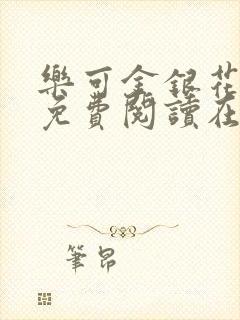 樂可金銀花
免費閱讀在
筆昂